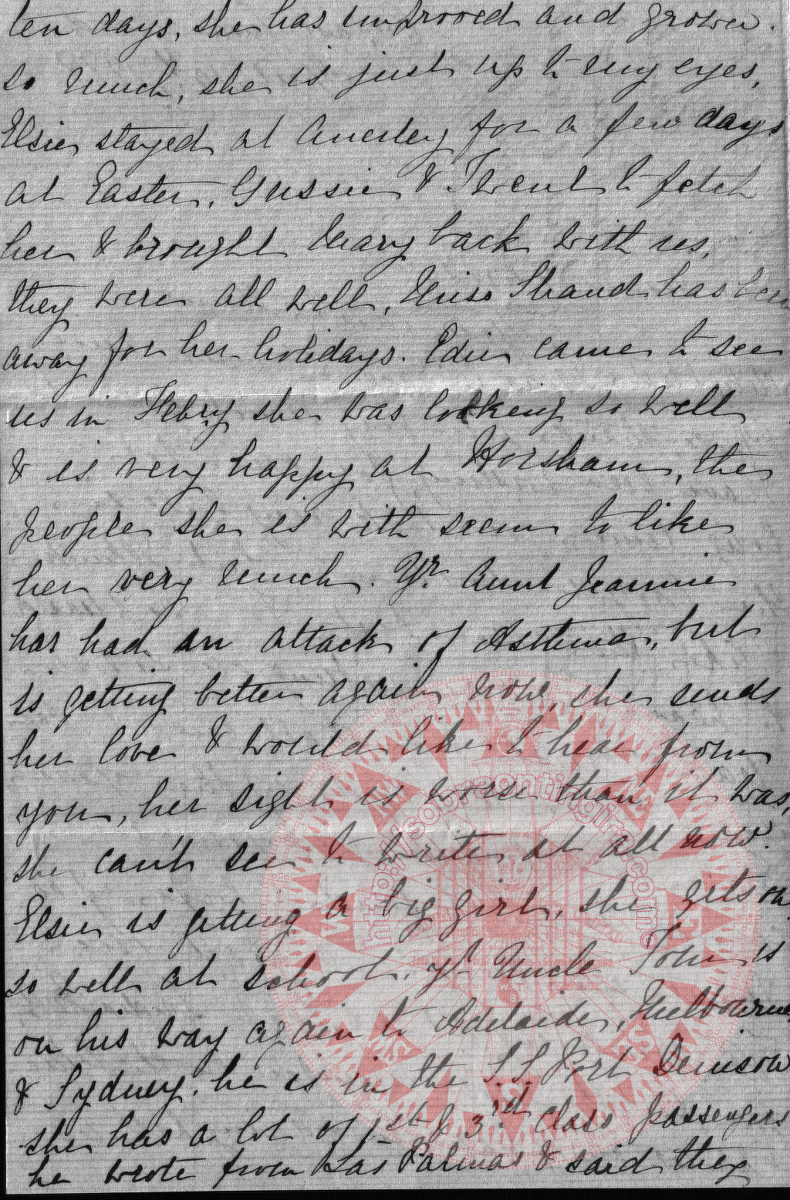 ten days, she has improved and grown
so much, she is just up to my eyes,
Elsie stayed at Anerley for a few days
at Easter, Gussie & I went to fetch
her & brought Mary back with us,
they were all well, Miss Shand has been
away for her holidays. Edie came to see
us in Febry she was looking so well
& is very happy at Horsham, the
people she is with seem to like
her very much. Yr. Aunt Jeannie
has had an attack of Asthma, but
is getting better again now, she sends
her love & would like to hear from
you, her sight is worse than it was,
she can't see to write at all now.
Elsie is getting a big girl, she gets on
so well at school. yr Uncle Tom is
on his way again to Adelaide, Melbourne
& Sydney. he is in the S.S Port Denison
she has a lot of 1st & 3rd class passengers
he wrote from Las Palmas & said they
http://sobrecontagiro.com